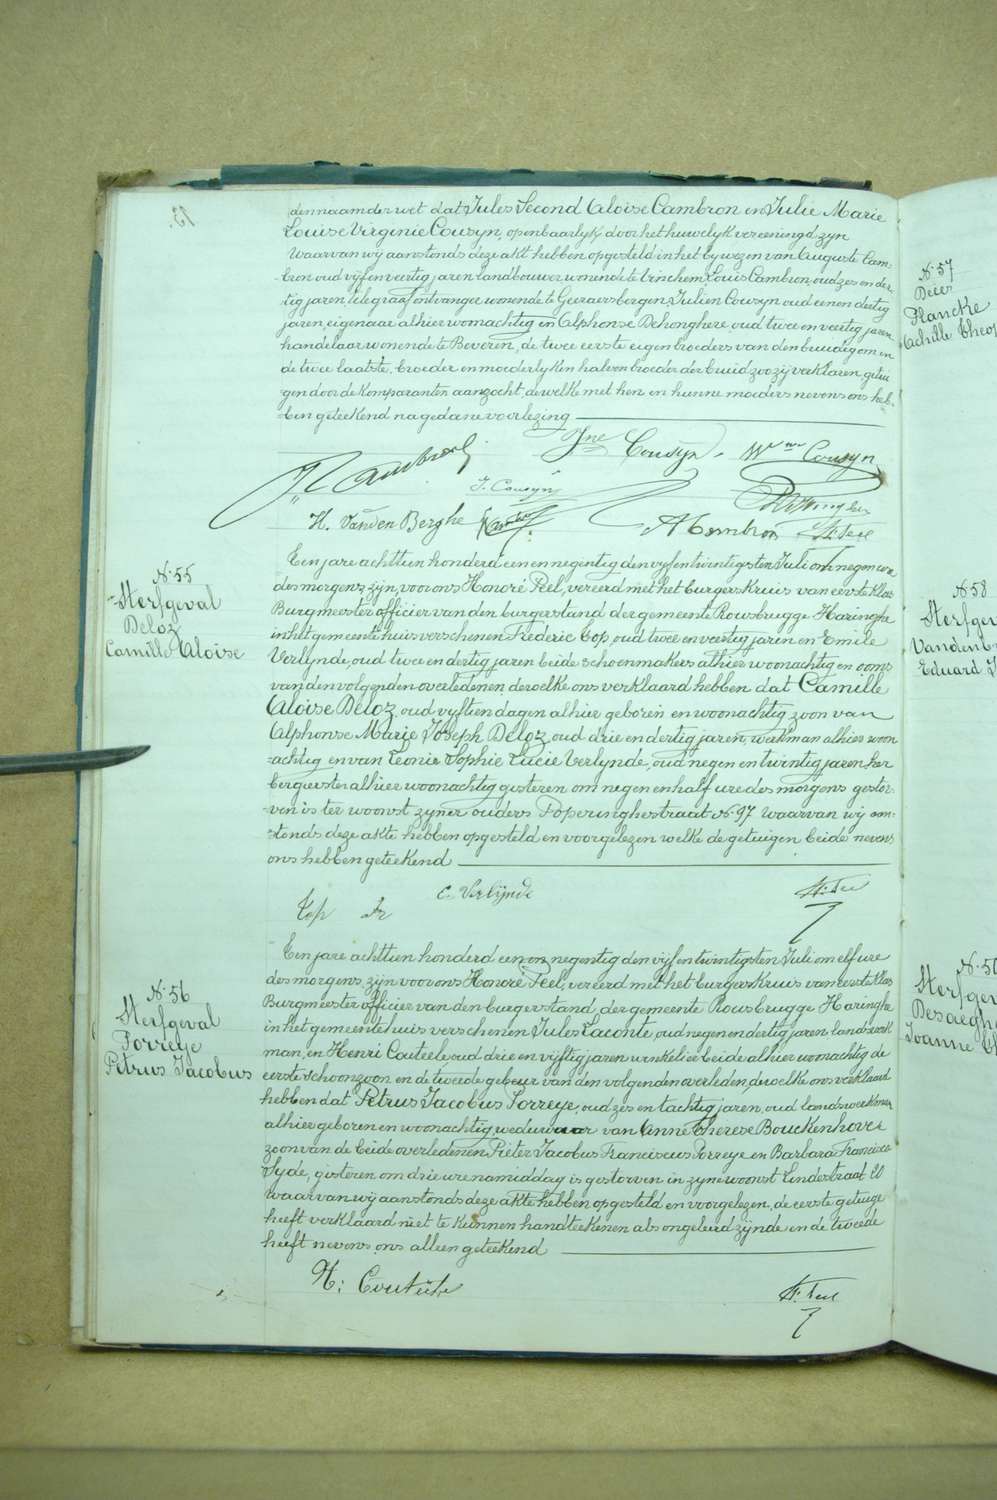 den naam der wet dat Jules Second Aloise Cambron en Julie Marie
Louise Virginie Cousyn, openbaarlyk door het huwelyk vereenigd zyn
Waarvan wij aanstonds deze akt hebben opgesteld in het bywezen van Auguste Cam-
bron oud vijf en veertig jaren landbouwer wonende te Crschem, Louis Cambron, oud zes en der-
tig jaren, telegraaf ontvanger wonende te Geeraersbergen, Julien Cousyn oud een en dertig
jaren, eigenaar alhier woonachtig en Alphonse Dehonghere, oud twee en veertig jaren
handelaar wonende te Beveren, de twee eerste eigen broeders van den bruidegom en
de twee laatste, broeder en moederlyken halven broeder der bruid zoo zij verklaren, getui-
gen door de komparanten aanzocht, dewelke met hen en hunne moeders nevens ons heb-
ben geteekend na gedane voorlezing
J Cambron
Jne Cousyn
We Cousyn
J. Cousyn
H. Vanden Berghe
A Cambron
H. Peel
N. 55
Sterfgeval
Deloz
Camille Aloise
Een jare achttien honderd een en negentig den vyf en twintigsten Juli om negen ure
des morgens, zijn, voor ons Honoré Peel, vereerd met het burgerskruis van eerste klas
Burgmeester officier van den burgerstand der gemeente Rousbrugge Haringhe
in het gemeentehuis verschenen Frederic Cop, oud twee en veertig jaren en Emile
Verlynde, oud twee en dertig jaren beide schoenmakers alhier woonachtig en ooms
van den volgenden overledenen dewelke ons verklaard hebben dat Camille
Aloise Deloz, oud vyftien dagen alhier geboren en woonachtig zoon van
Alphonse Marie Joseph Deloz, oud drie en dertig jaren, werkman alhier woon
achtig en van Leonie Sophie Lucie Verlynde, oud negen en twintig jaren her
bergierster alhier woonachtig gisteren om negen en half ure des morgens gestor-
ven is ter woonst zyner ouders Poperinghestraat N. 97 Waarvan wij aan-
stonds deze akte hebben opgesteld en voorgelezen welke de getuigen beide nevens
ons hebben geteekend
Cop Fr
E. Verlijnde
H. Peel
N. 56
Sterfgeval
Porreye
Petrus Jacobus
Een jare achttien honderd een en negentig den vijf en twintigsten Juli om elf ure
des morgens, zijn voor ons Honoré Peel, vereerd met het burgerskruis van eerste klas
Burgmeester officier van den burgerstand, der gemeente Rousbrugge Haringhe
in het gemeentehuis verschenen Jules Laconte, oud negen en dertig jaren, landswerk
man, en Henri Couteele oud drie en vyftig jaren winkelier beide alhier woonachtig de
eerste schoonzoon en de tweede gebeur van den volgenden overleden, dewelke ons verklaard
hebben dat Petrus Jacobus Porreye, oud zes en tachtig jaren, oud landswerkman
alhier geboren en woonachtig, weduwaar van Anne Therese Bouckenhove
zoon van de beide overledenen Pieter Jacobus Franciscus Porreye en Barbara Francisca
Syde, gisteren om drie ure namiddag is gestorven in zyne woonst Lindestraat 20
waarvan wij aanstonds deze akte hebben opgesteld en voorgelezen, de eerste getuige
heeft verklaard niet te kunnen handteekenen als ongeleerd zijnde en de tweede
heeft nevens ons alleen geteekend
H: Couteele
H. Peel
N. 57
Deces
Plancke
Achille Theop
N. 58
Sterfgev
Vandenb
Eduard J
Sterfgev
Desaegh
Joanne